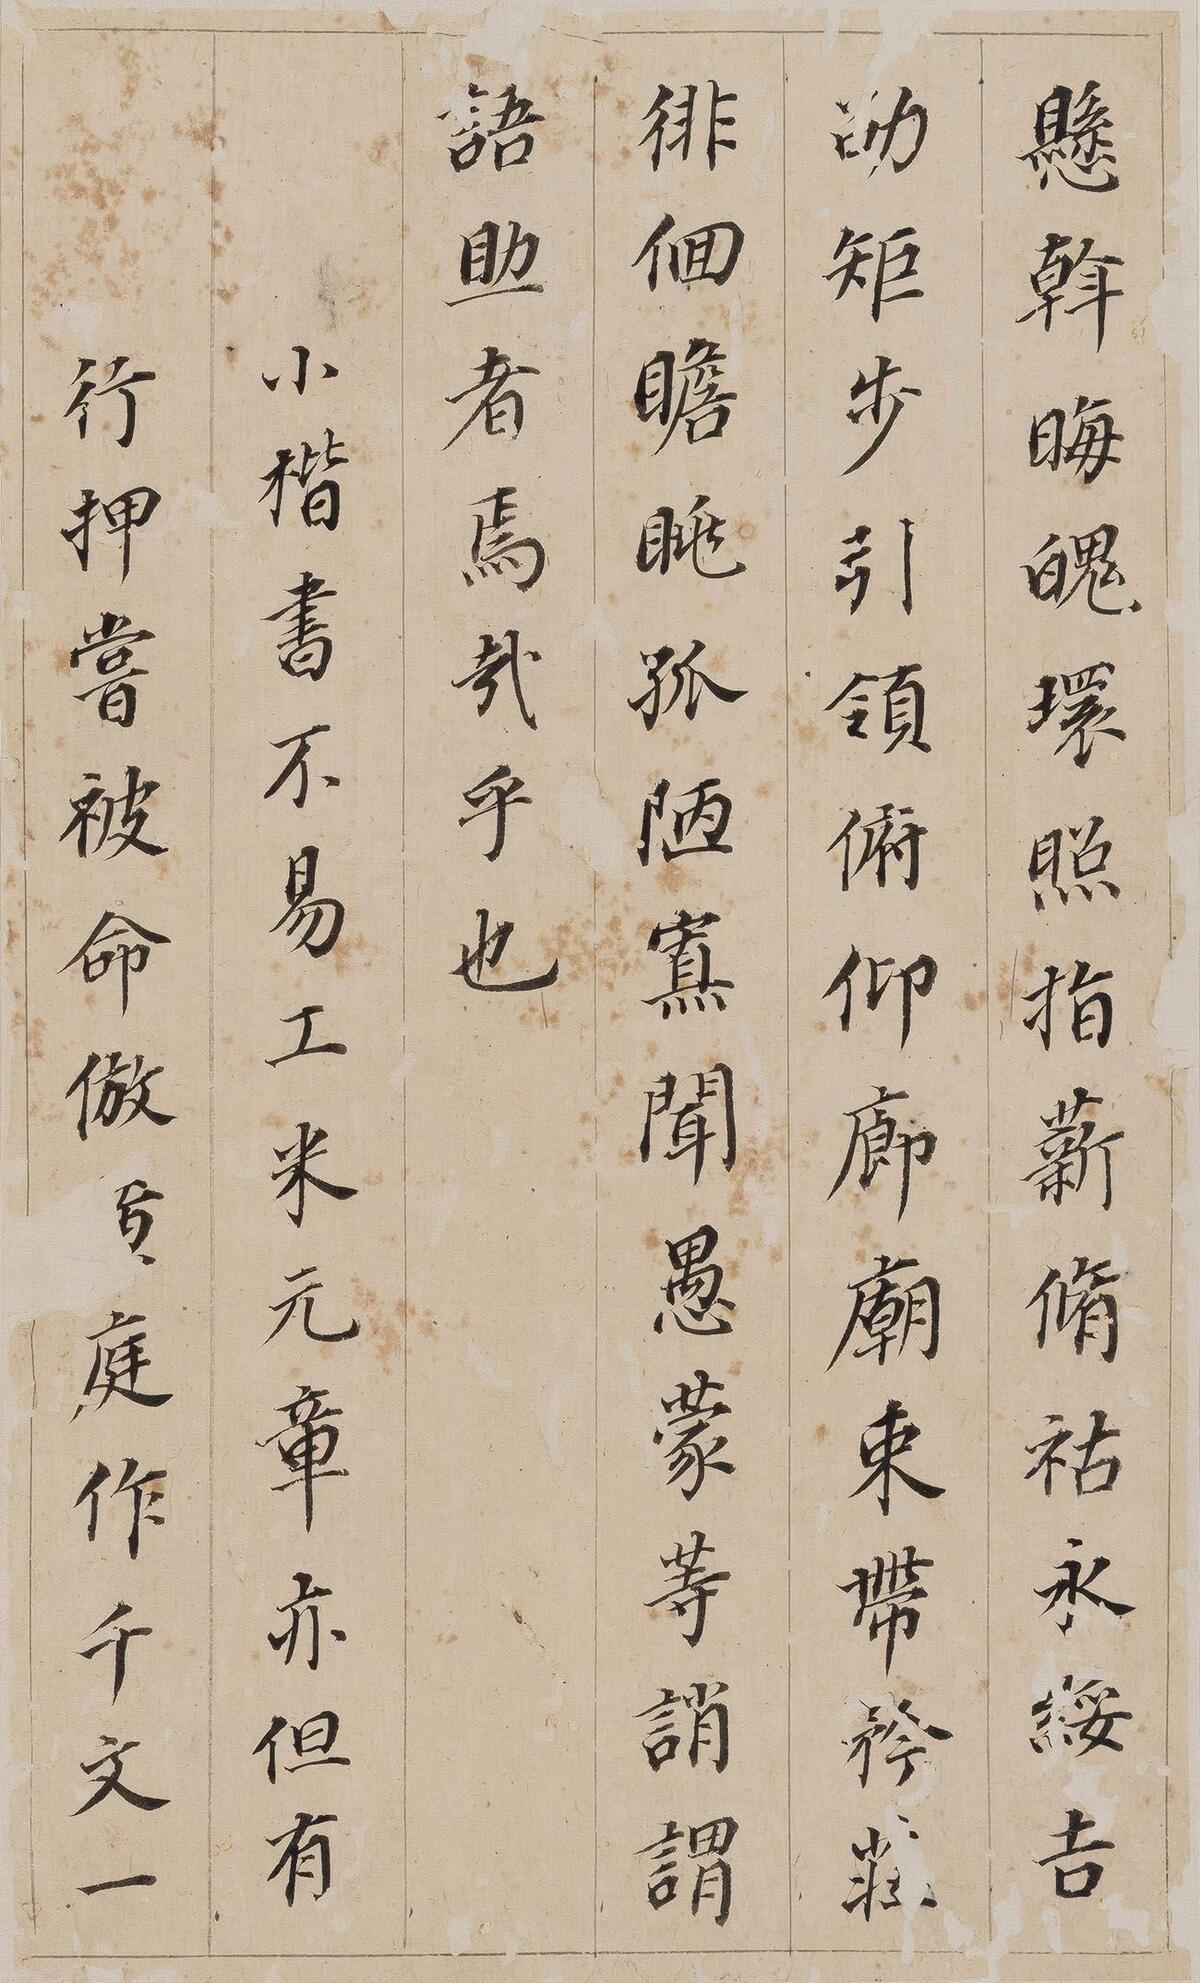 懸斡晦魄環照指薪脩祜永綏吉
劭矩步引領俯仰廊廟束帶矜莊
徘佪瞻眺孤陋寡聞愚蒙等誚謂
語助者焉哉乎也
小楷書不易工米元章亦但有
行押嘗被命倣黃庭作千文一